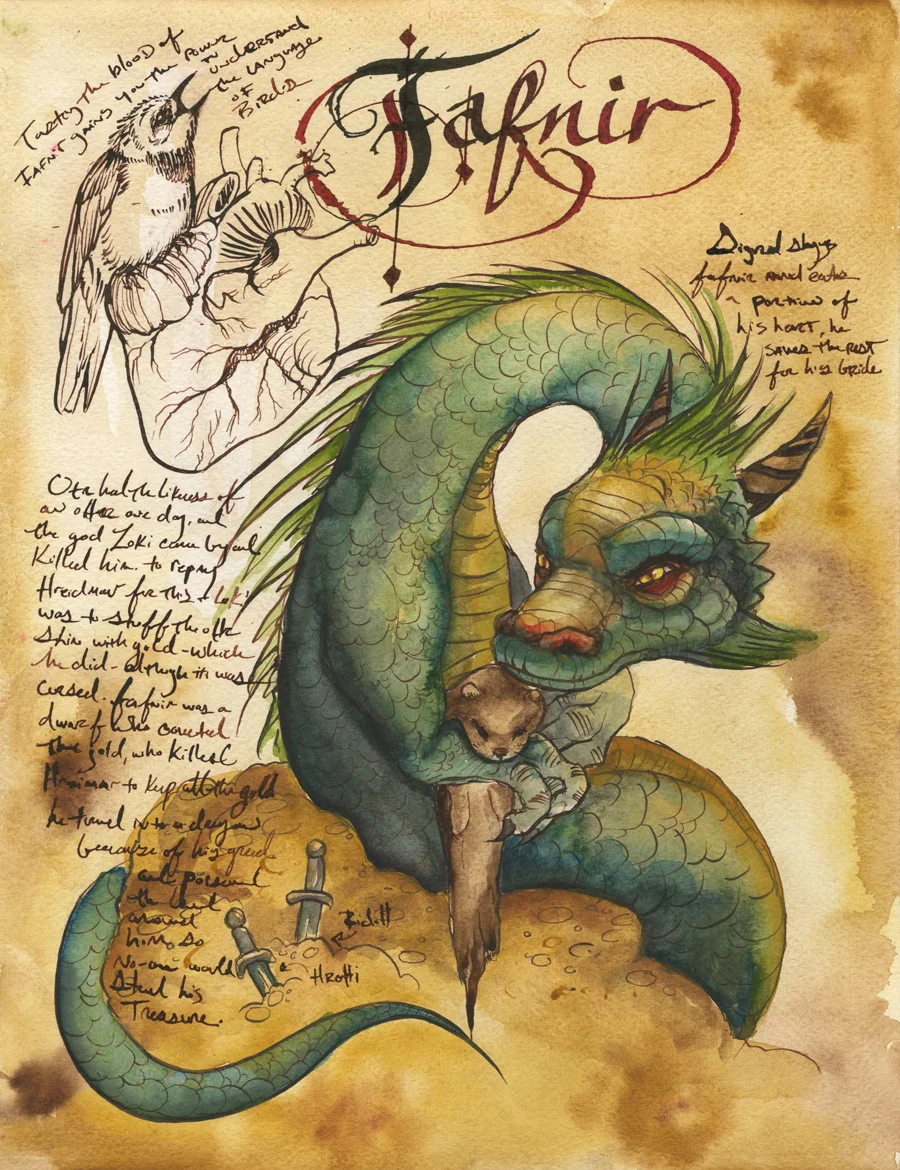 Tasting the blood of
Fafnir gains you the power
to understand
the language
of
Birds
Fafnir
Sigurd slays
fafnir and eats
a portion of
his heart, he
saves the rest
for his bride
Otr had the likness of
an otter one day, and
the god Loki came by and
killed him. to repay
Hreidmar for this Loki
was to stuff the otter
skin with gold - which
he did - although it was
cursed. fafnir was a
dwarf who coveted
the gold, who killed
Hreidmar to keep all the gold
he turned into a dragon
because of his greed
and poisoned
the land
around
him, so
no-one would
Steal his
Treasure.
Ridill
Hrotti